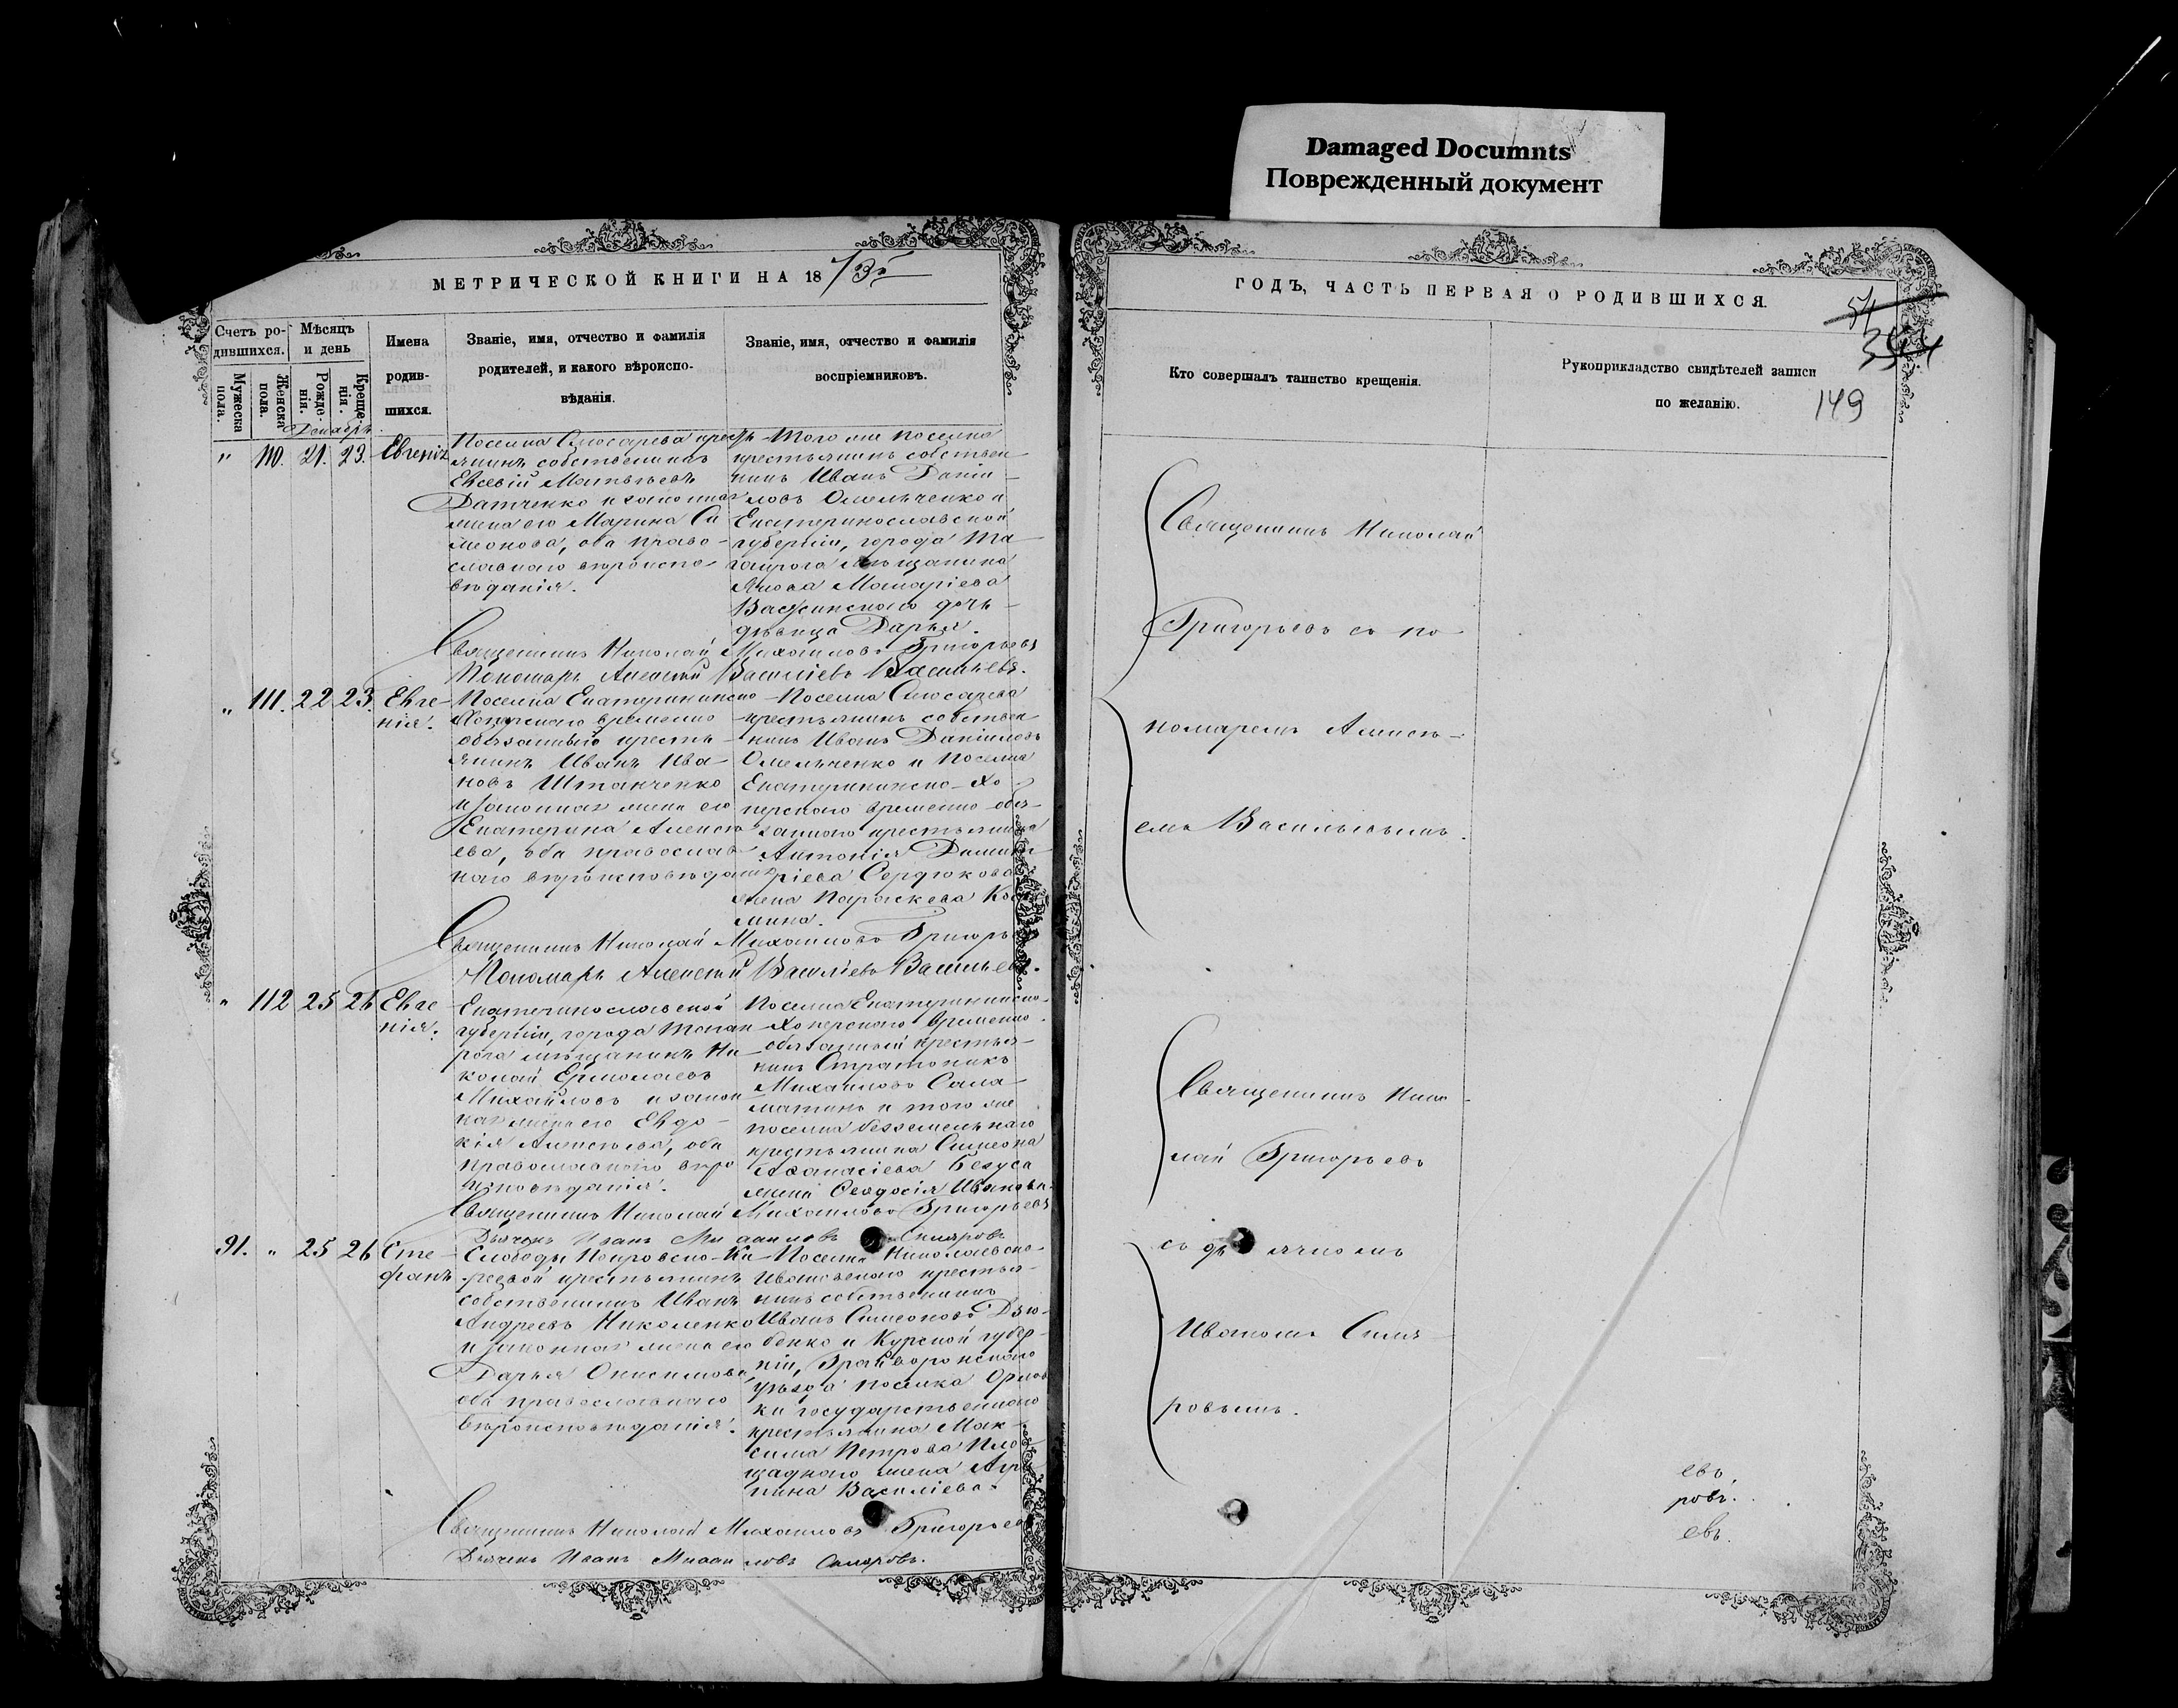 Damaged Documnts
Поврежденный документ
МЕТРИЧЕСКОЙ КНИГИ НА 1873
Счетъ ро-
дившихся.
Мѣсяцъ
и день
Мужеска
пола.
Женска
пола.
Рожде-
нія.
Креще-
нія.
Имена
родив-
шихся.
Званіе, имя, отчество и фамилія
родителей, и какого вѣроиспо-
вѣданія.
Званіе, имя, отчество и фамилія
воспріемниковъ.
Декабрь
" 110. 21. 23. Евгенія
Поселка Слюсарева кресть
янинъ собственникъ
Евсевій Матвѣевъ
Датченко и законная
жена его Марина Си
меонова, оба право-
славнаго вѣроиспо
вѣданія.
Того же поселка
крестьянинъ собствен
никъ Иванъ Даніи-
ловъ Омельченко и
Екатеринославской
губерніи, города Та-
ганрога мѣщанина
Якова
дочь
дѣвица Дарья.
Священникъ Николай Михаиловъ Григорьевъ
Пономарь Алексѣй Василіевъ Васильевъ.
" 111. 22 23. Евге-
нія.
Поселка Екатерининско
Хоперскаго временно
обязанный кресть-
янинъ Иванъ Ива-
новъ Штанченко
и законная жена его
Екатерина Алексѣ
ева, оба православ
наго вѣроисповѣданія
Поселка Слюсарева
крестьянинъ собствен
никъ Иванъ Даніиловъ
Омельченко и поселка
Екатерининско-Хо-
перскаго временно-обя-
заннаго крестьянина
Антонія Димит
ріева Сердюкова
жена Параскева Коз
мина.
Священникъ Николай Михаиловъ Григорь
Пономарь Алексѣй Василіевъ Васильевъ.
" 112 25 26 Евге
нія.
Екатеринославской
губерніи, города Таган
рога мѣщанинъ Ни-
колай Ермолаевъ
Михайловъ и закон
ная жена его Евдо-
кія Алексѣева, оба
православнаго вѣро
исповѣданія.
Поселка Екатерининско-
Хоперскаго временно
обязанный крестья-
нинъ Стратоникъ
Михаиловъ Сала-
матинъ и того же
поселка безземельнаго
крестьянина Симеона
Аѳанасіева Безуса
жена Ѳеодосія Иванова.
Священникъ Николай Михаиловъ Григорьевъ
Дьячекъ Иванъ Скляровъ
91. " 25 26 Сте-
фанъ
Слободы Покровско-Ки-
реевой крестьянинъ
собственникъ Иванъ
Андреевъ Николенко
и законная жена его
Дарья Онисимова,
оба православнаго
вѣроисповѣданія.
Поселка Николаевско-
Ивановскаго крестья-
нинъ собственникъ
Иванъ Симеоновъ Дзю-
бенко и Курской губер-
ніи, Грайворонскаго
уѣзда поселка Орлов
ки государственнаго
крестьянина Мак-
сима Петрова Пло
щаднаго жена Агри
пина Василіева.
Священникъ Николай Михаиловъ Григорьев
Дьячекъ Иванъ Скляровъ.
ГОДЪ, ЧАСТЬ ПЕРВАЯ О РОДИВШИХСЯ.
54
149
Кто совершалъ таинство крещенія.
Рукоприкладство свидѣтелей записи
по желанію.
Священникъ Николай
Григорьевъ съ по-
номаремъ Алексѣ-
емъ Васильевымъ.
Священникъ Нико-
лай Григорьевъ
съ дьячкомъ
Иваномъ Скля-
ровымъ.
евъ
ровъ.
евъ.